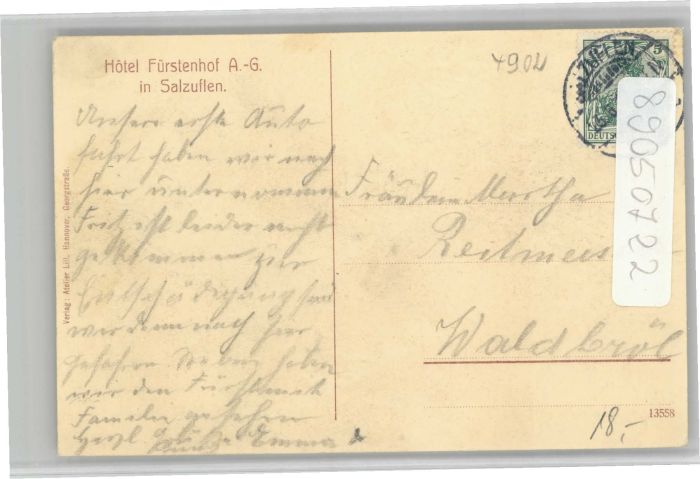 Hôtel Fürstenhof A.-G.
in Salzuflen.
4902
5
DEUTSC
89050722
Unsere erste Auto
fahrt haben wir nach
hier unternommen
Fritz ist leider nicht
gekommen zur
Entschädigung sind
wir dann nach hier
gefahren. Soeben haben
wir den Fürst
Familie gesehen
Herzl Grüße Emma
Fräulein Martha
Reitmeis
Waldbröl
Verlag: Atelier Lill, Hannover, Georgstraße.
13558
18,-